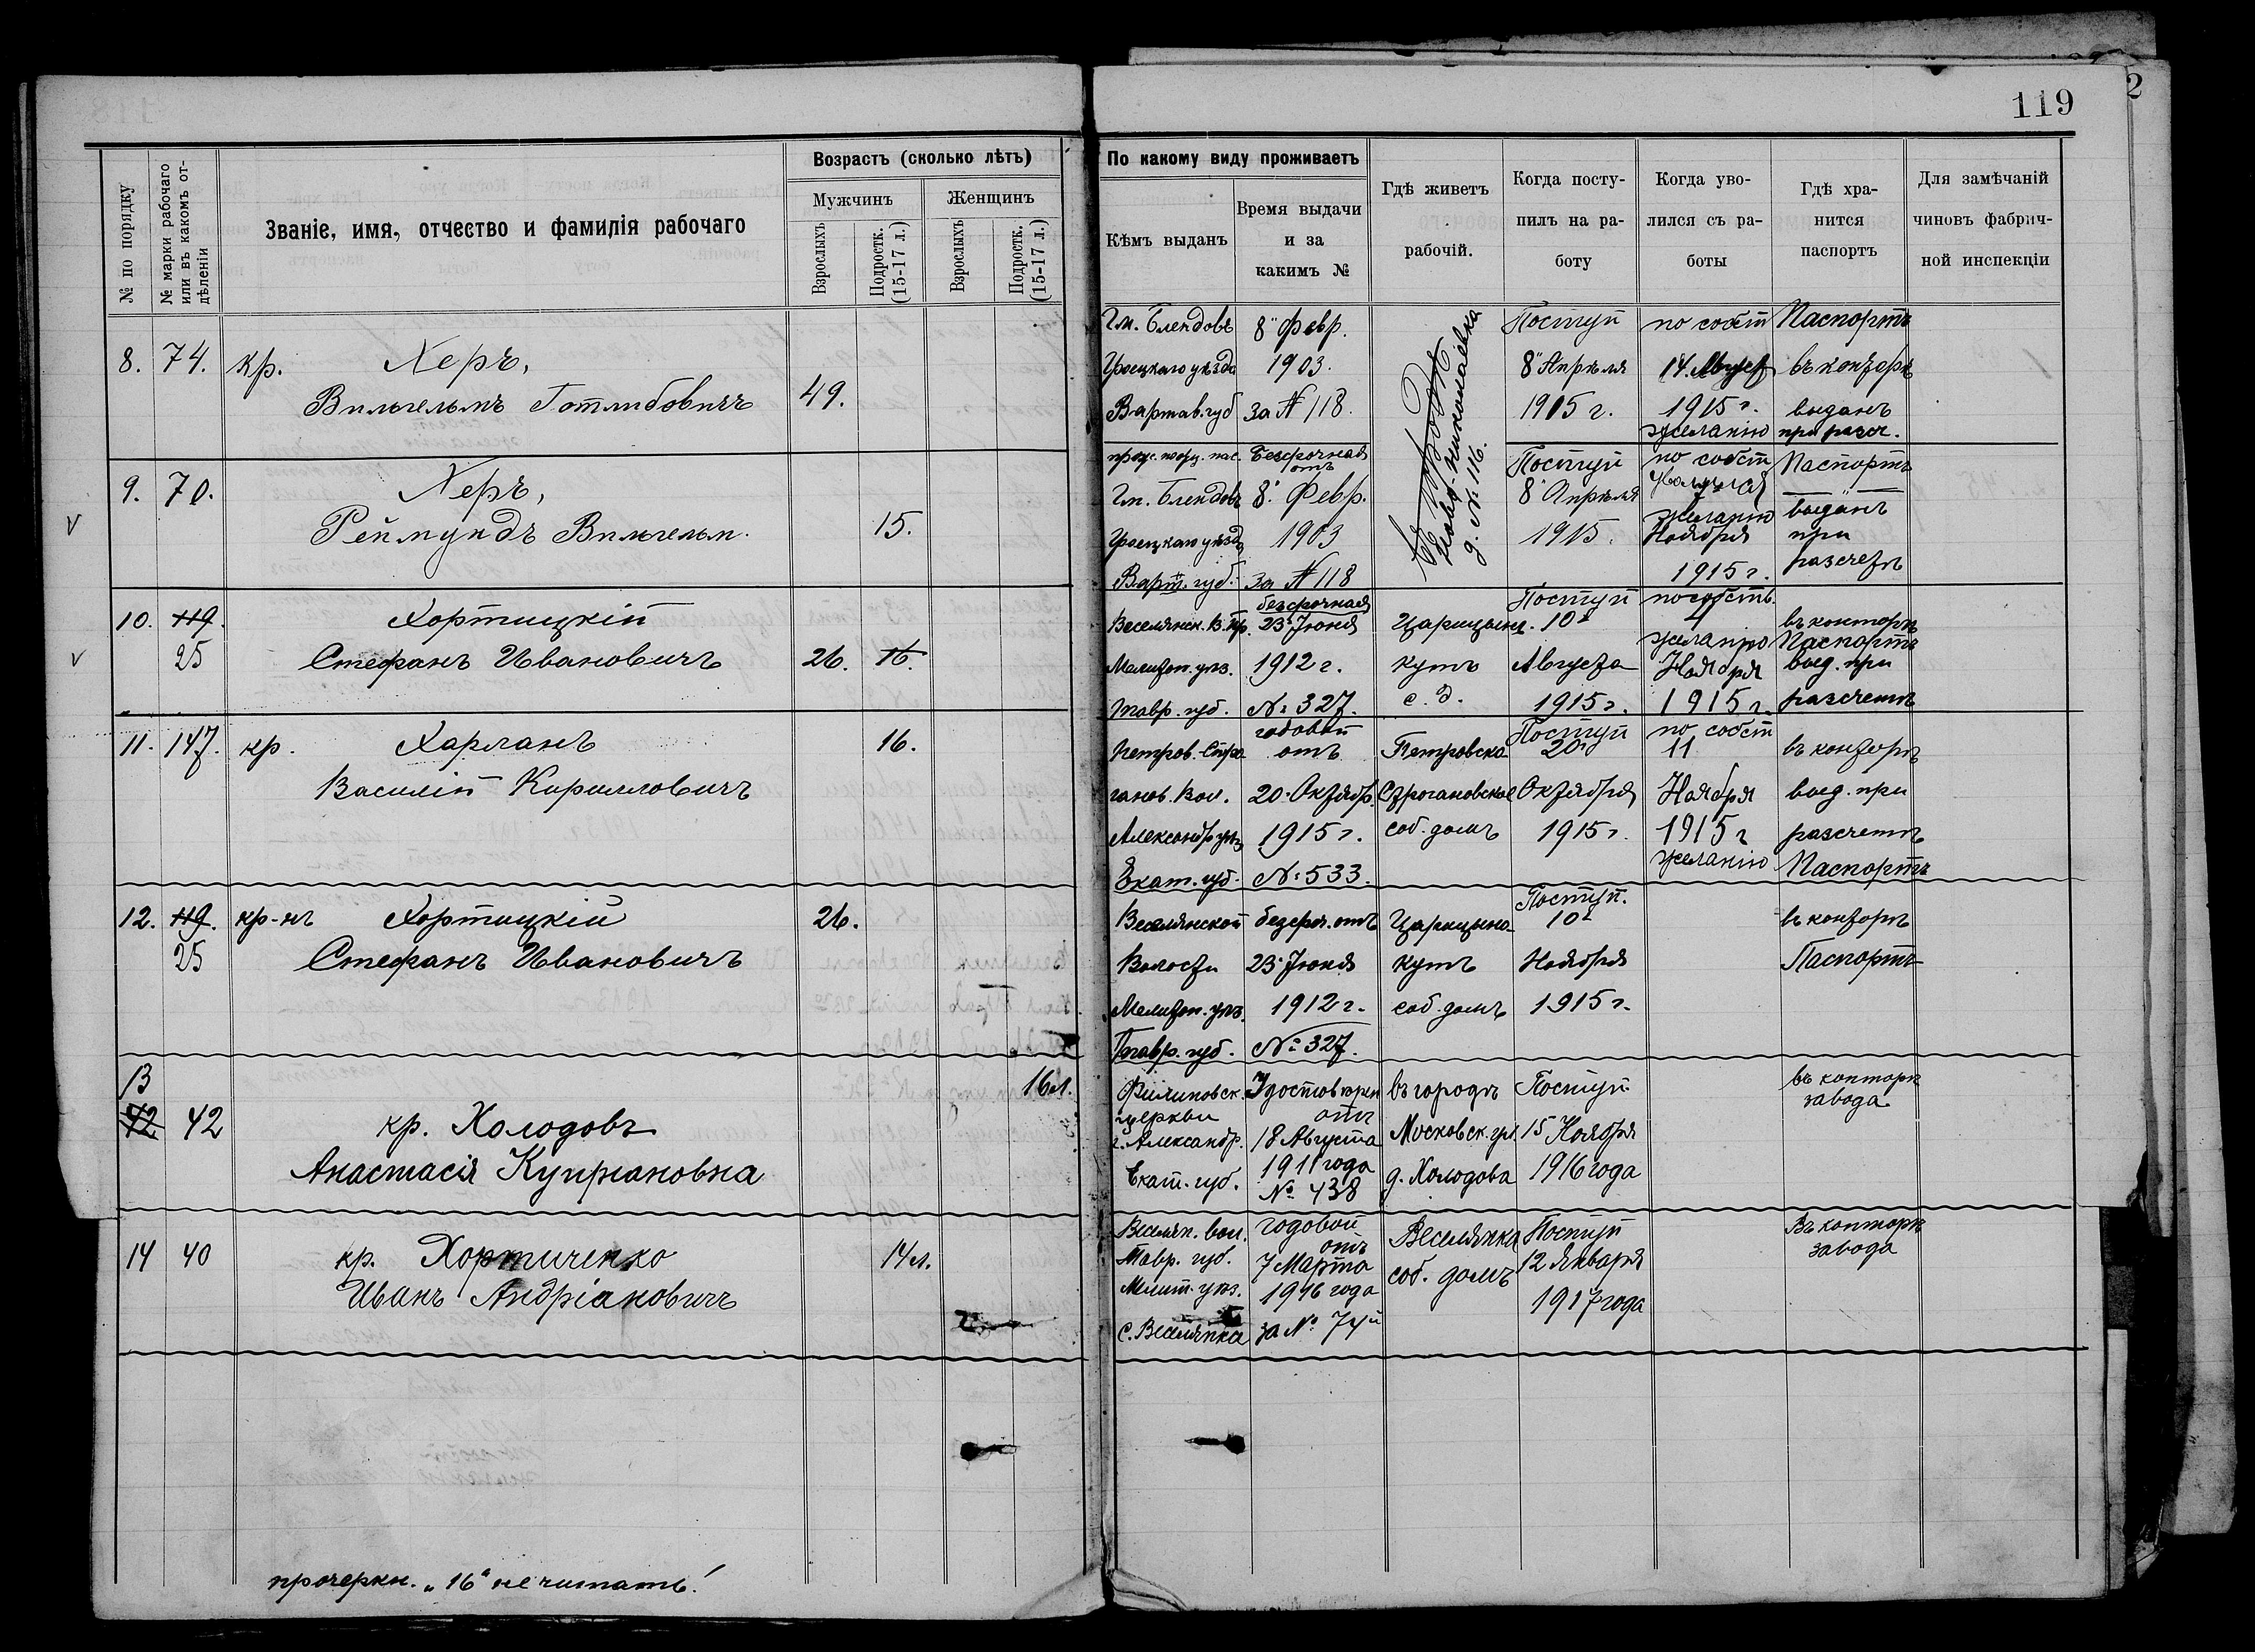 119
№ по порядку
№ марки рабочаго или въ какомъ отдѣленіи
Званіе, имя, отчество и фамилія рабочаго
Возрастъ (сколько лѣтъ)
Мужчинъ
Женщинъ
Взрослыхъ
Подростк. (15-17 л.)
Взрослыхъ
Подростк. (15-17 л.)
По какому виду проживаетъ
Кѣмъ выданъ
Время выдачи и за какимъ №
Гдѣ живетъ рабочій.
Когда поступилъ на работу
Когда уволился съ работы
Гдѣ хранится паспортъ
Для замѣчаній чиновъ фабричной инспекціи
8. 74. кр. Херъ,
Вильгельмъ Готлибовичъ 49.
Гм. Блендовъ
Гроецкаго уѣзда
Варшав. губ
8 Февр.
1903.
за № 118.
Ново-Николаевка
д. № 116.
Поступ
8 Апрѣля
1915 г.
по собст
14. Август
1915 г.
желанію
Паспортъ
въ конторѣ
выданъ
при разсч.
9. 70. Херъ,
Реймундъ Вильгельм. 15.
Гм. Блендовъ
Гроецкаго уѣзда
Варш. губ.
Безсрочная
отъ
8. Февр.
1903
за № 118
Поступ
8 Апрѣля
1915.
по собст
желанію
Ноября
1915 г.
Паспортъ
выданъ
при
разсчетѣ
10. 119. Хортицкій
25 Стефанъ Ивановичъ 26. 16.
Веселянск. В. Пр.
Мелитоп. уѣз.
Тавр. губ.
безсрочная
23 Іюня
1912 г.
№ 327.
Царицынъ
кутъ
с. д.
Поступ
10
Августа
1915 г.
по собств.
желанію
Ноября
1915 г.
въ конторѣ
Паспортъ
выд. при
разсчетѣ
11. 147. кр. Харланъ 16.
Василій Кирилловичъ
Петров. Стро
ганов. Вол.
Александр уѣз
Екат. губ.
годовой
отъ
20 Октябр.
1915 г.
№ 533.
Петровско
Строгановское
соб. домъ
Поступ
20
Октября
1915 г.
по собст
11
Ноября
1915 г
желанію
въ конторѣ
выд. при
разсчетѣ
Паспортъ
12. 119. кр-нъ Хортицкій 26.
25 Стефанъ Ивановичъ
Веселянской
Волости
Мелитоп. уѣз.
Тавр. губ.
безсроч. отъ
23 Іюня
1912 г.
№ 327.
Царицынъ
кутъ
соб. домъ
Поступ.
10
Ноября
1915 г.
въ конторѣ
Паспортъ
13
42 42 кр. Холодовъ 16 л.
Анастасія Купріановна
Филиповск.
церкви
г. Александр.
Екат. губ.
Удостовѣрен
отъ
18 Августа
1911 года
№ 438
въ городѣ
Московск. ул
д. Холодова
Поступ
15 Ноября
1916 года
въ конторѣ
завода
14 40 кр. Хортиченко 14 л.
Иванъ Андріановичъ
Веселян. вол.
Тавр. губ.
Мелит. уѣз.
с. Веселянка
годовой
отъ
7 Марта
1916 года
за № 74
Веселянка
соб. домъ
Поступ
12 Января
1917 года
Въ конторѣ
завода
прочеркн. „16“ не читать!